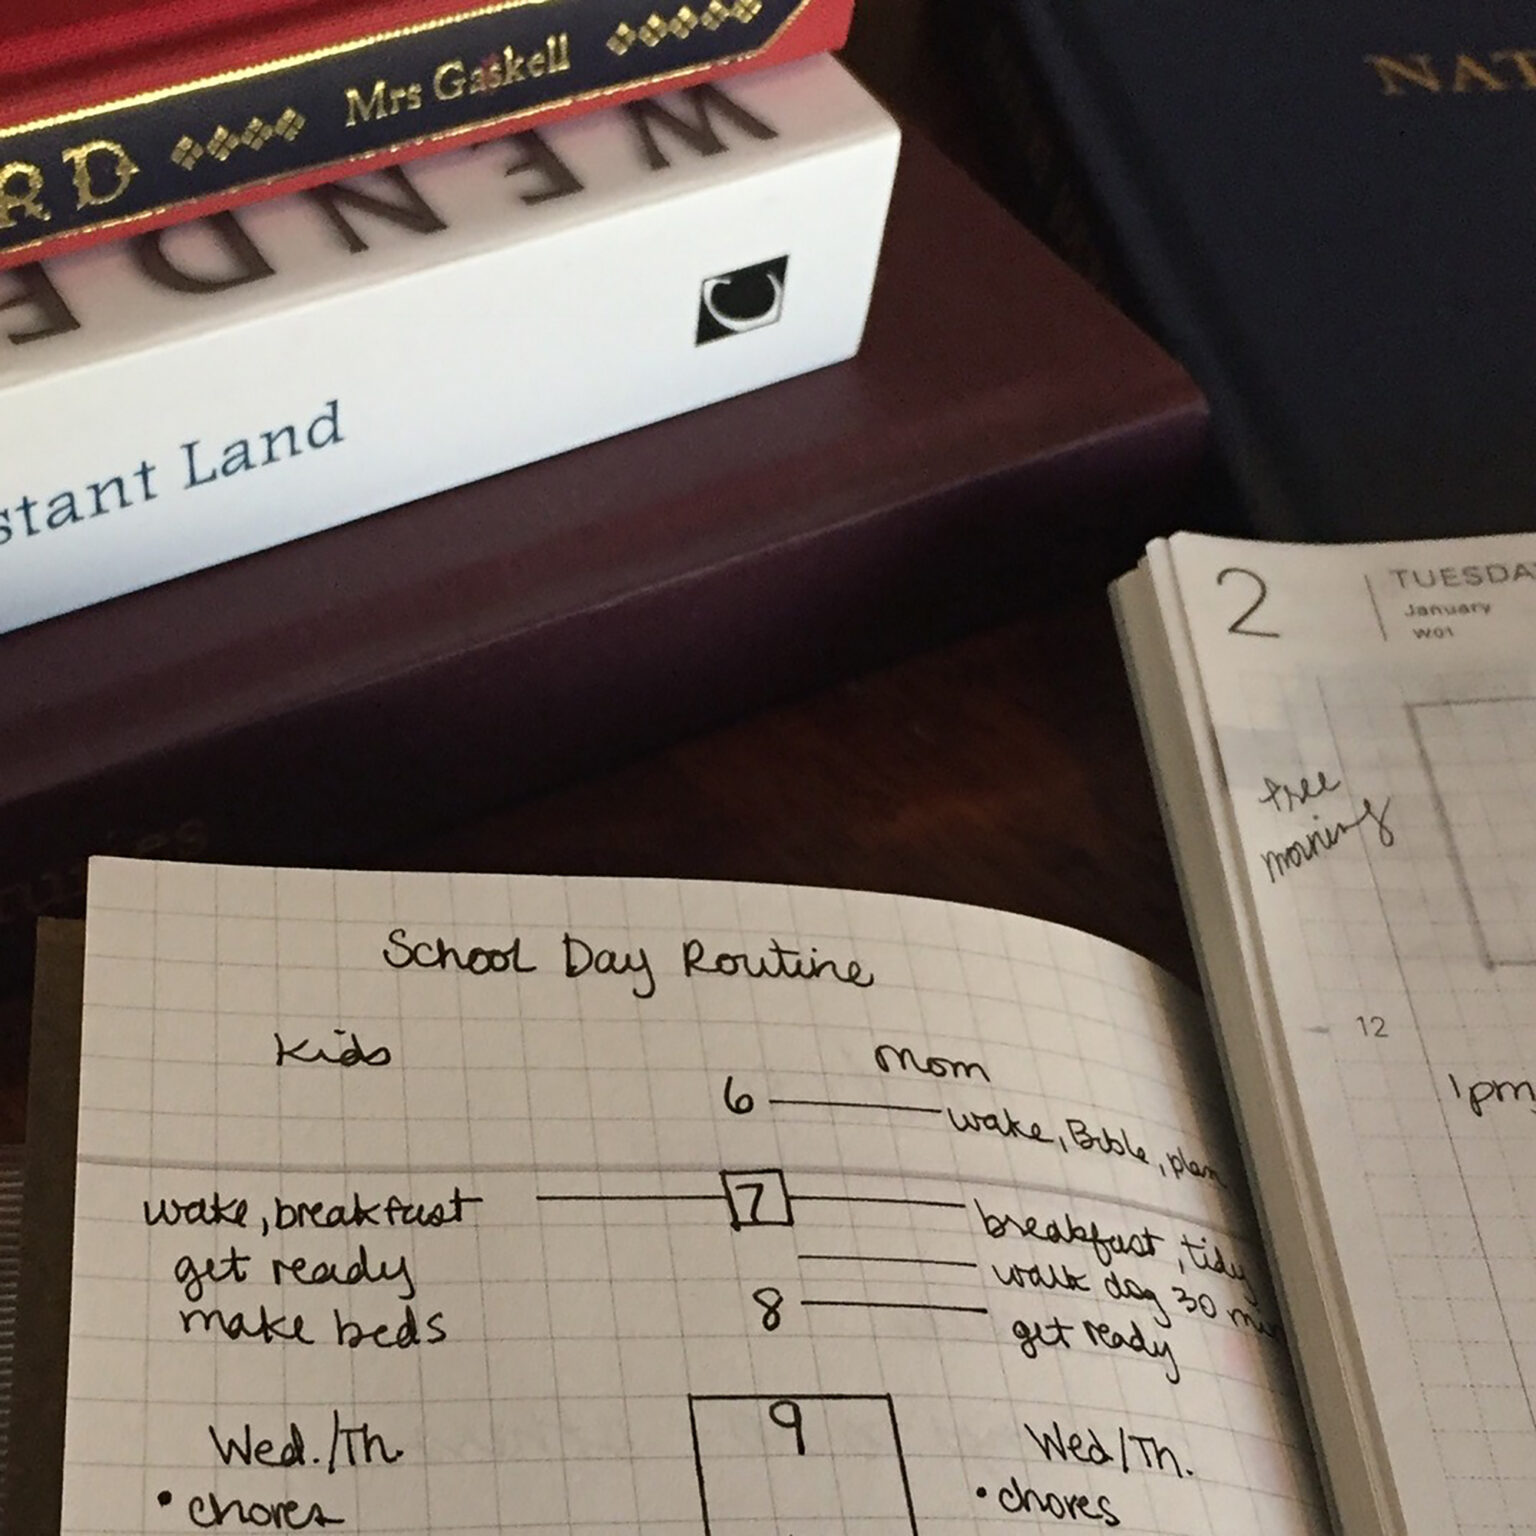 RD Mrs Gaskell
WENDE
stant Land
NAT
2 TUESDA
January
W01
free
morning
12
1pm
School Day Routine
Kids
Mom
6 wake, Bible, plan
wake, breakfast 7 breakfast, tidy
get ready walk dog 30 min
make beds 8 get ready
9
Wed./Th. Wed/Th.
• chores • chores